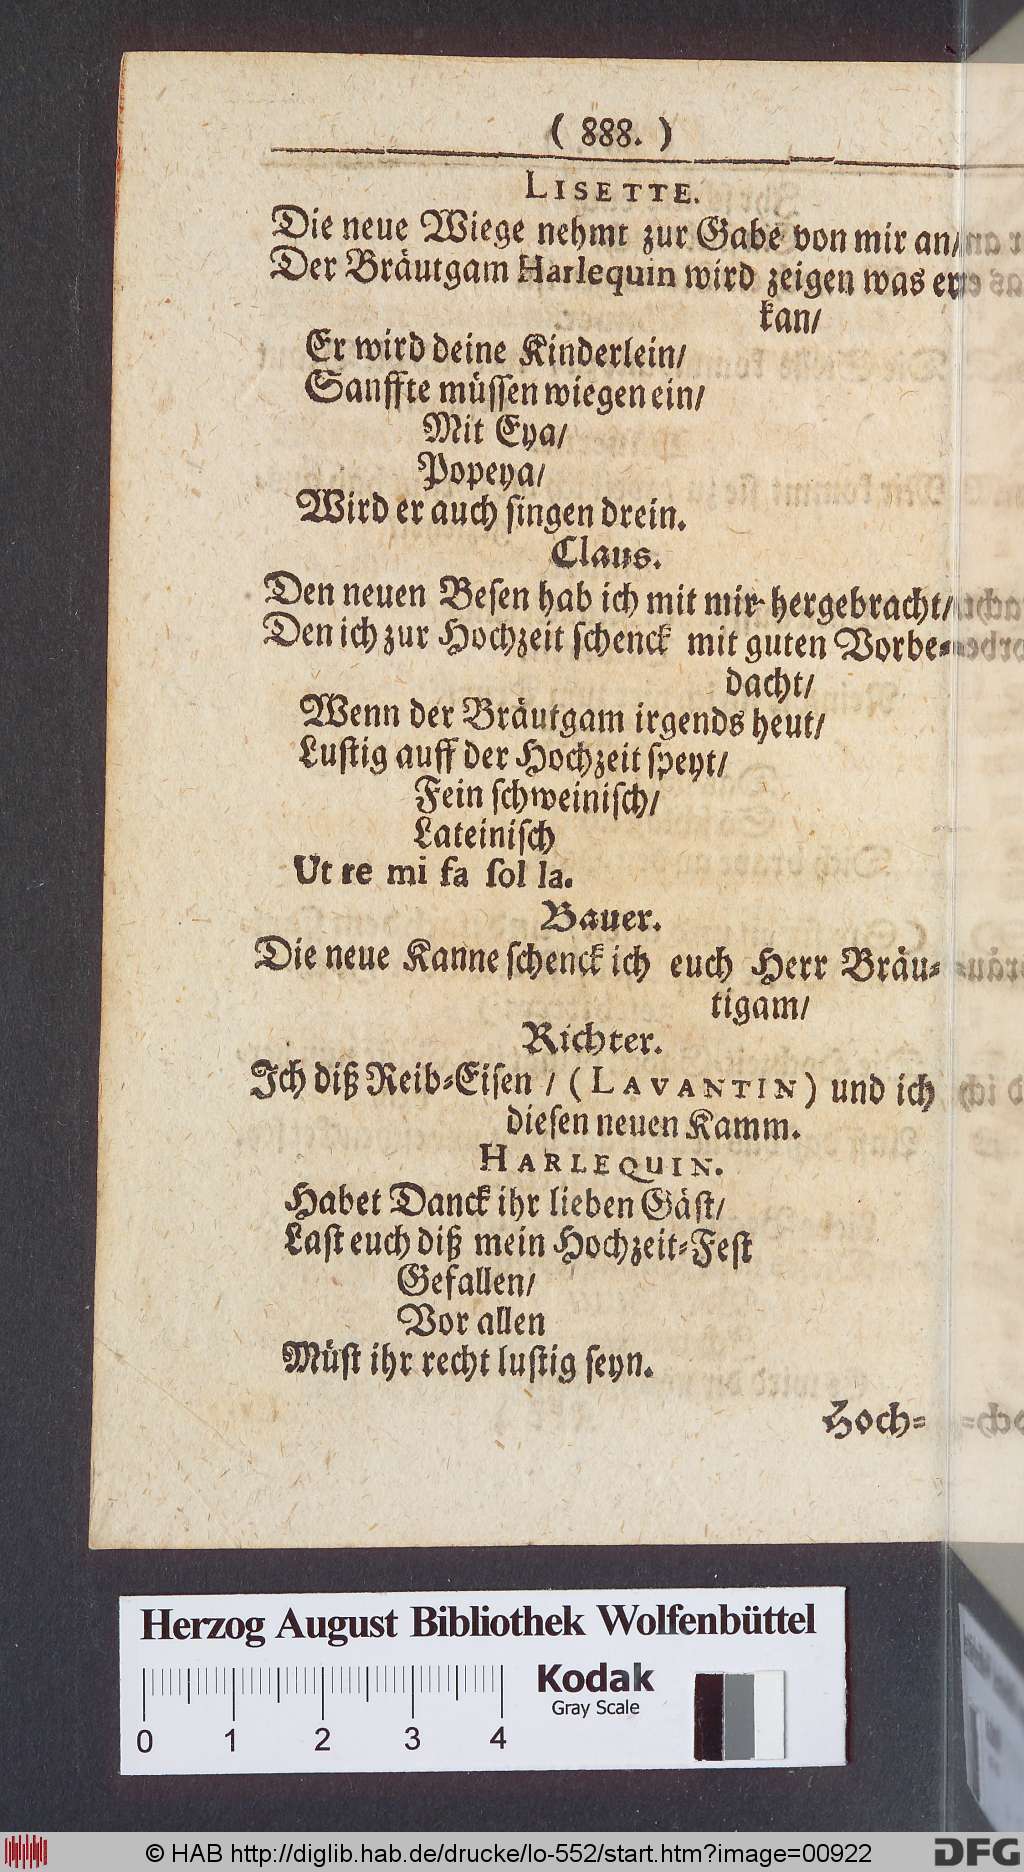 ( 888. )
LISETTE.
Die neue Wiege nehmt zur Gabe von mir an/
Der Bräutgam Harlequin wird zeigen was er
kan/
Er wird deine Kinderlein/
Sanffte müssen wiegen ein/
Mit Eya/
Popeya/
Wird er auch singen drein.
Claus.
Den neuen Besen hab ich mit mir hergebracht/
Den ich zur Hochzeit schenck mit guten Vorbe-
dacht/
Wenn der Bräutgam irgends heut/
Lustig auff der Hochzeit speyt/
Fein schweinisch/
Lateinisch
Ut re mi fa sol la.
Bauer.
Die neue Kanne schenck ich euch Herr Bräu-
tigam/
Richter.
Ich diß Reib-Eisen / (LAVANTIN) und ich
diesen neuen Kamm.
HARLEQUIN.
Habet Danck ihr lieben Gäst/
Last euch diß mein Hochzeit-Fest
Gefallen/
Vor allen
Müst ihr recht lustig seyn.
Hoch-
Herzog August Bibliothek Wolfenbüttel
Kodak
Gray Scale
0 1 2 3 4
© HAB http://diglib.hab.de/drucke/lo-552/start.htm?image=00922
DFG